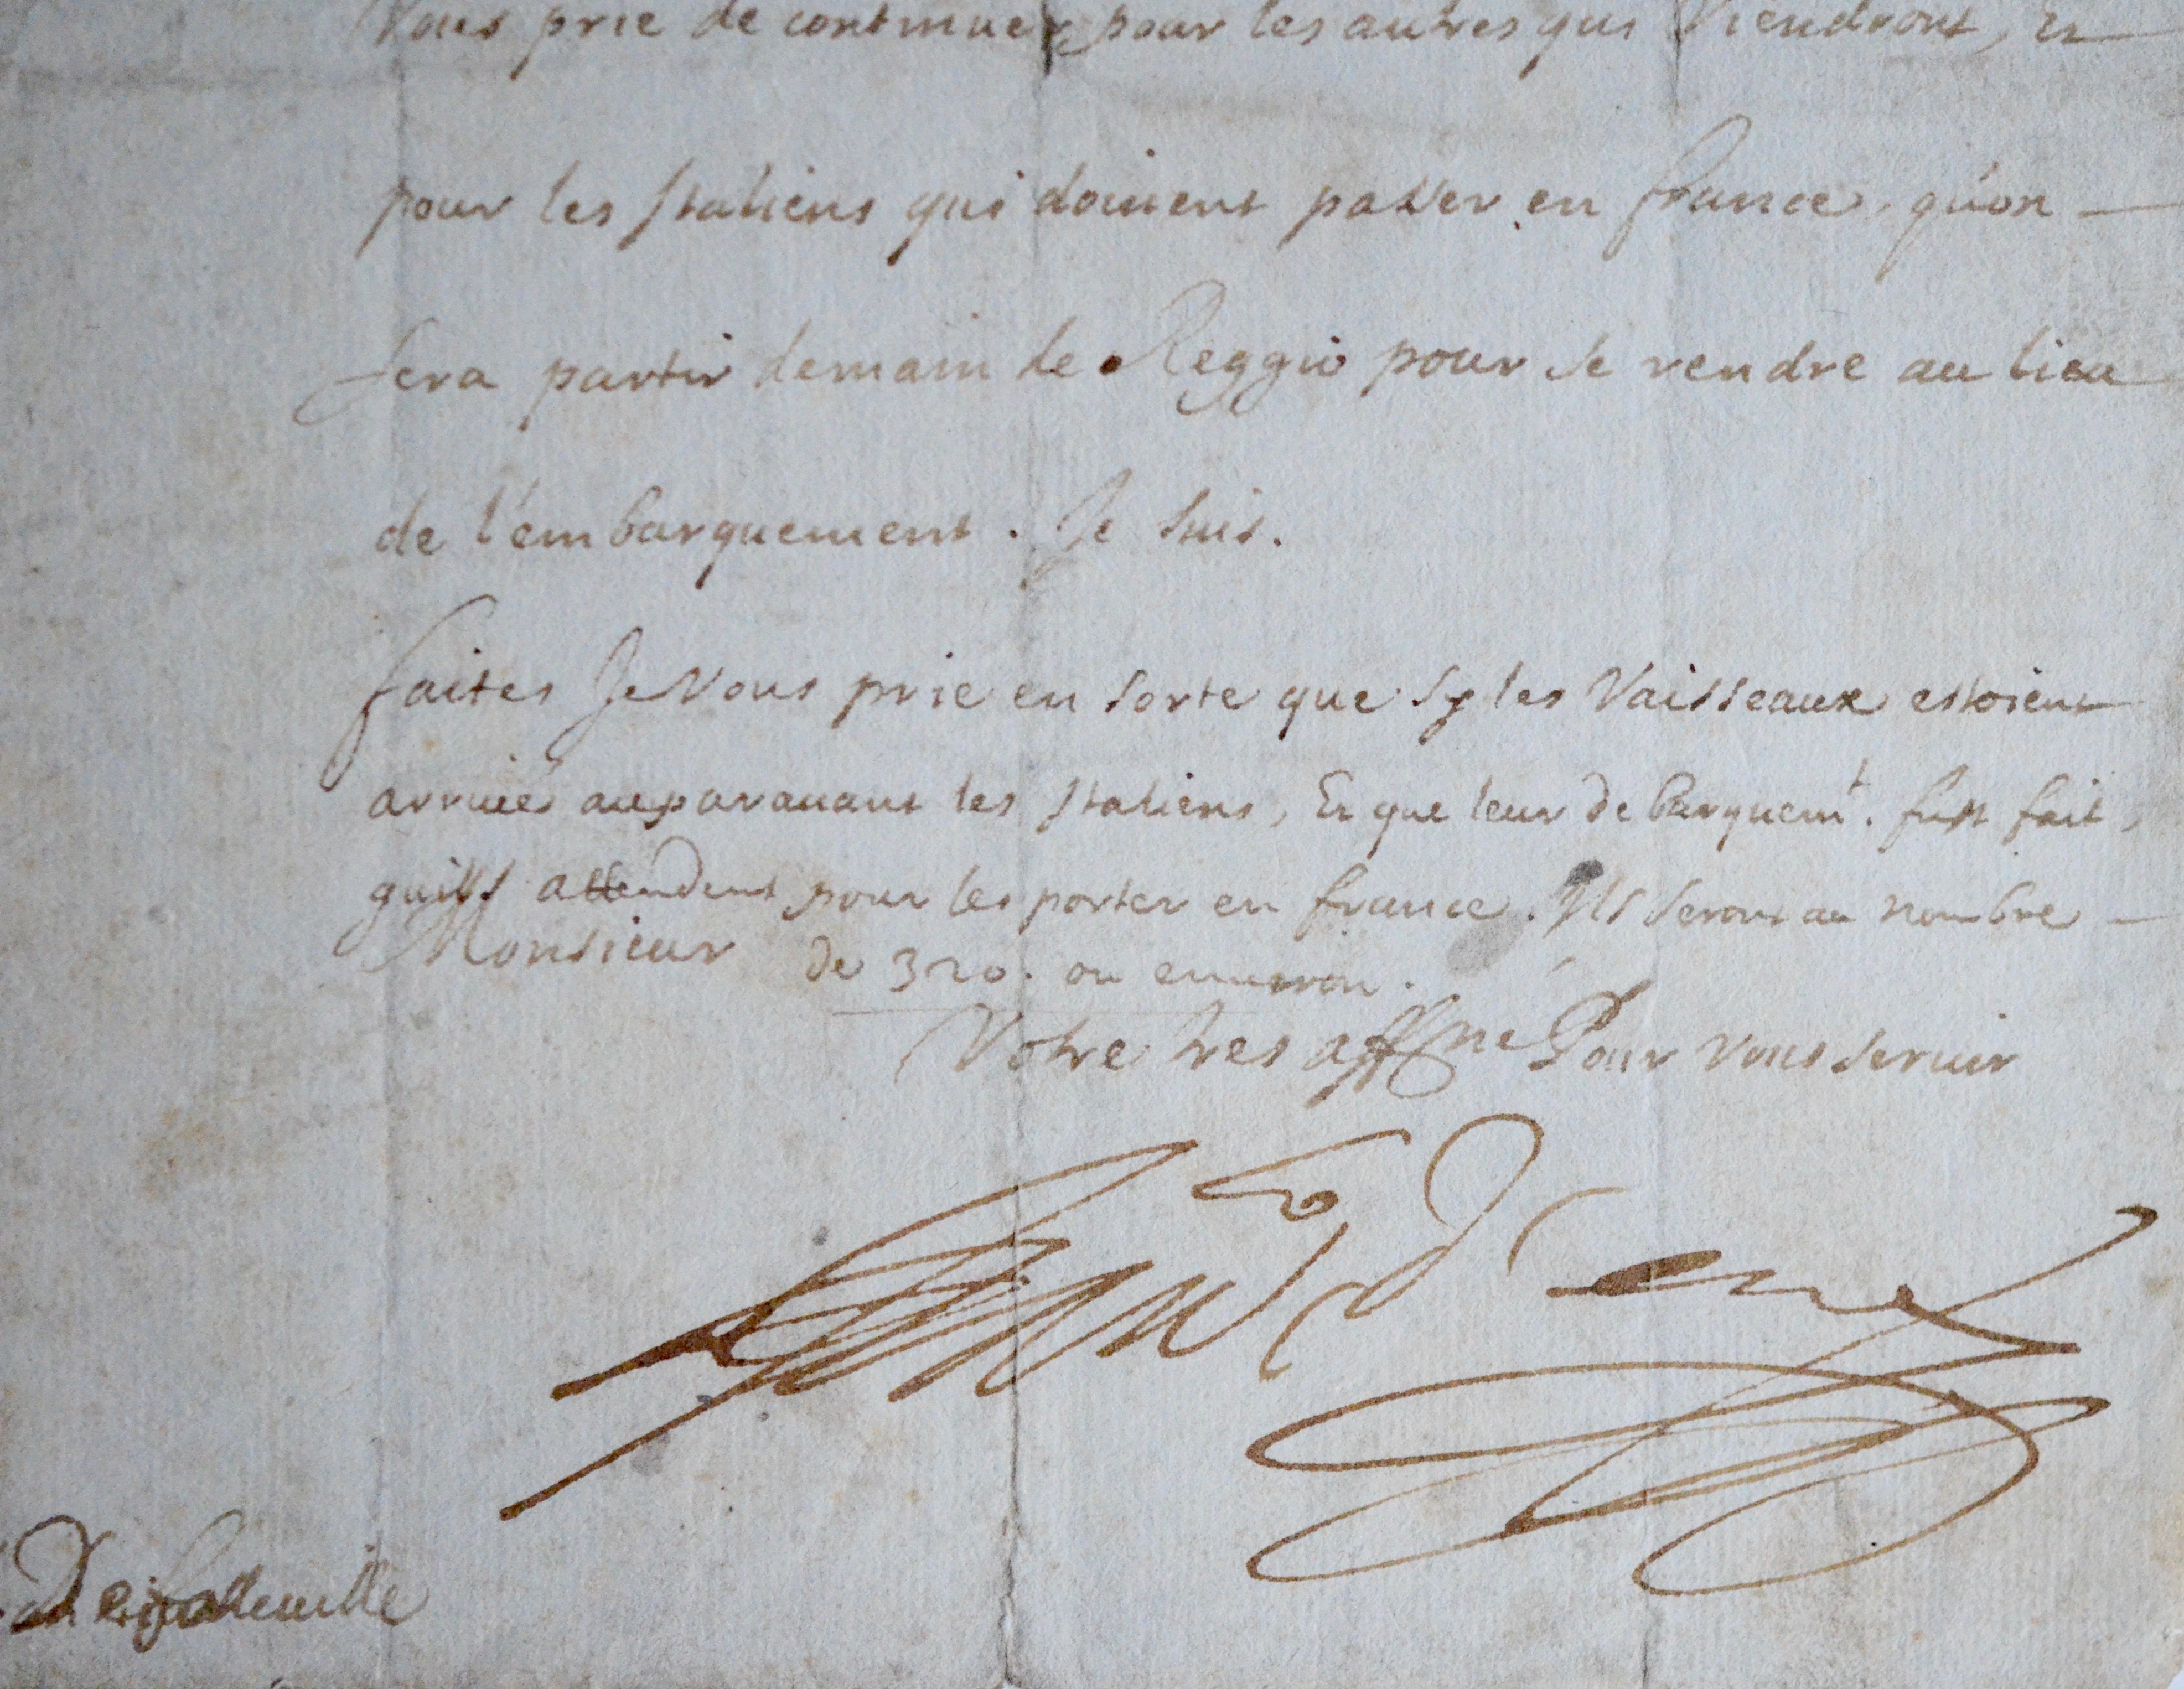 Vous prie de continuer, pour les autres qui Viendront, et
pour les Italiens qui doiuent passer en france, qu'on
fera partir demain de Reggio pour se rendre au lieu
de l'embarquement. Je suis.
faites Je Vous prie en sorte que sy les Vaisseaux estoient
arriués auparauant les Italiens, Et que leur debarquem.t fust fait,
qu'ils attendent pour les porter en france. Ils seront au nombre
de 320. ou enuiron.
Monsieur
Votre tres aff.me Pour vous seruir